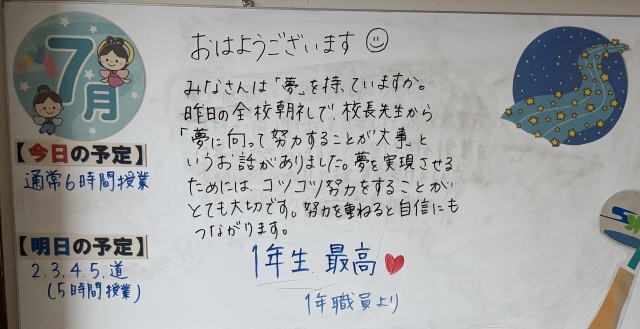 7月
【今日の予定】
通常6時間授業
【明日の予定】
2.3.4.5.道
(5時間授業)
おはようございます
みなさんは「夢」を持っていますか。
昨日の全校朝礼で、校長先生から
「夢に向って努力することが大事」と
いうお話がありました。夢を実現させる
ためには、コツコツ努力をすることが
とても大切です。努力を重ねると自信にも
つながります。
1年生 最高
1年職員より